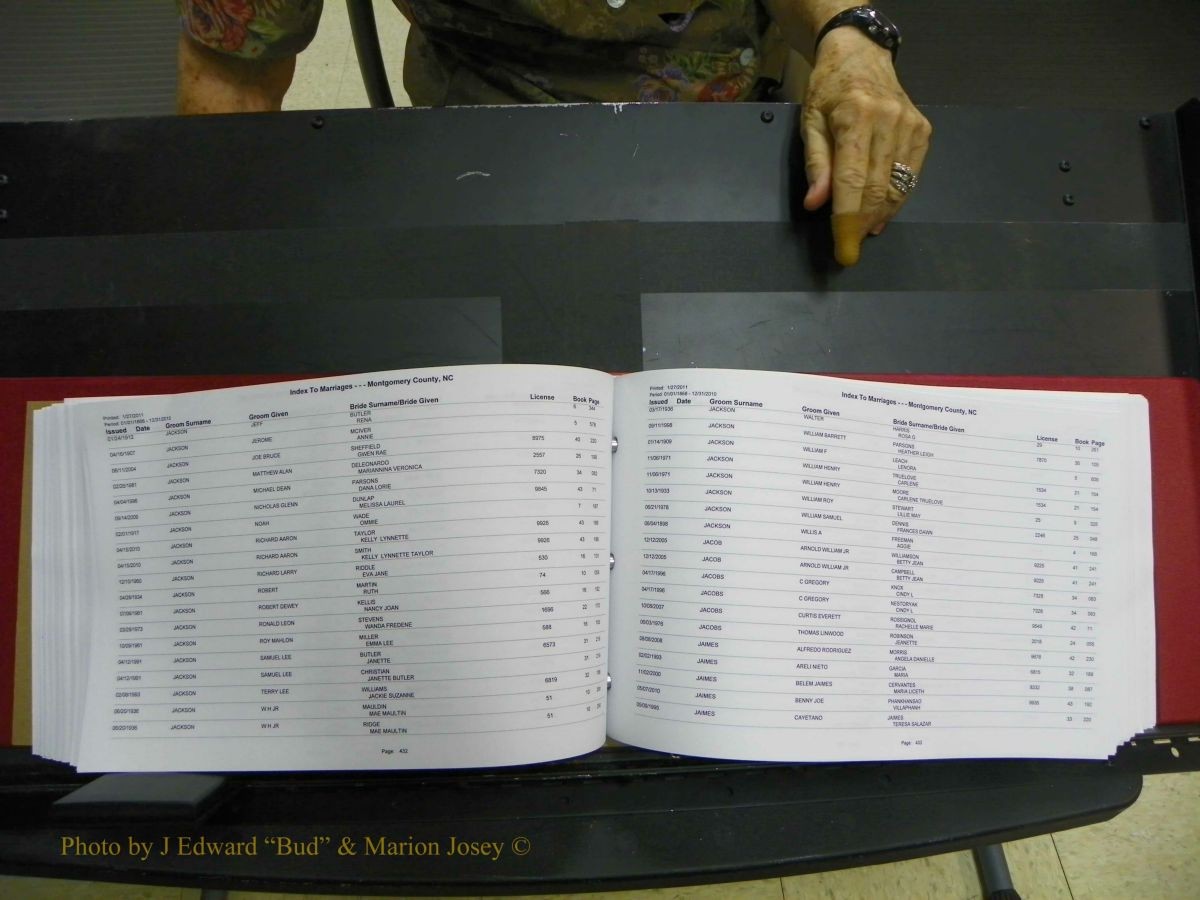 Index To Marriages - - - Montgomery County, NC
Printed: 1/27/2011
Period: 01/01/1868 - 12/31/2010
Issued Date Groom Surname Groom Given Bride Surname/Bride Given License Book Page
01/24/1912 JACKSON JEFF BUTLER 6 344
RENA
04/16/1907 JACKSON JEROME MCIVER 5 576
ANNIE
06/11/2004 JACKSON JOE BRUCE SHEFFIELD 8975 40 220
GWEN RAE
02/25/1981 JACKSON MATTHEW ALAN DELEONARDO 2557 26
MARIANNINA VERONICA
04/04/1996 JACKSON MICHAEL DEAN PARSONS 7320 34
DANA LORIE
09/14/2000 JACKSON NICHOLAS GLENN DUNLAP 9845 43 71
MELISSA LAUREL
02/01/1917 JACKSON NOAH WADE 7
OMMIE
04/15/2010 JACKSON RICHARD AARON TAYLOR 9926 43
KELLY LYNNETTE
04/15/2010 JACKSON RICHARD AARON SMITH 9926 43
KELLY LYNNETTE TAYLOR
12/10/1960 JACKSON RICHARD LARRY RIDDLE 530 16
EVA JANE
04/28/1934 JACKSON ROBERT MARTIN 74 10
RUTH
07/08/1961 JACKSON ROBERT DEWEY KELLIS 566 16
NANCY JOAN
03/29/1973 JACKSON RONALD LEON STEVENS 1696 22
WANDA FREDENE
10/09/1961 JACKSON ROY MAHLON MILLER 588 16
EMMA LEE
04/12/1991 JACKSON SAMUEL LEE BUTLER 6573 31
JANETTE
04/12/1991 JACKSON SAMUEL LEE CHRISTIAN
JANETTE BUTLER
02/08/1993 JACKSON TERRY LEE WILLIAMS 6819 32
JACKIE SUZANNE
06/20/1936 JACKSON W H JR MAULDIN 51 10
MAE MAULTIN
06/20/1936 JACKSON W H JR RIDGE 51 10
MAE MAULTIN
Page: 432
Index To Marriages - - - Montgomery County, NC
Printed: 1/27/2011
Period: 01/01/1868 - 12/31/2010
Issued Date Groom Surname Groom Given Bride Surname/Bride Given License Book Page
03/17/1936 JACKSON WALTER HARRIS 29 10 261
ROSA G
09/11/1998 JACKSON WILLIAM BARRETT PARSONS 7870 36 105
HEATHER LEIGH
01/14/1909 JACKSON WILLIAM F LEACH 5
LENORA
11/06/1971 JACKSON WILLIAM HENRY TRUELOVE 1534 21 154
CARLENE
11/06/1971 JACKSON WILLIAM HENRY MOORE 1534 21 154
CARLENE TRUELOVE
10/13/1933 JACKSON WILLIAM ROY STEWART 25 9
LILLIE MAY
06/21/1978 JACKSON WILLIAM SAMUEL DENNIS 2246 25
FRANCES DAWN
06/04/1898 JACKSON WILLIS A FREEMAN 4
AGGIE
12/12/2005 JACOB ARNOLD WILLIAM JR WILLIAMSON 9225 41 241
BETTY JEAN
12/12/2005 JACOB ARNOLD WILLIAM JR CAMPBELL 9225 41 241
BETTY JEAN
04/17/1996 JACOBS C GREGORY KNOX 7326 34 083
CINDY L
04/17/1996 JACOBS C GREGORY NESTORYAK 7326 34 083
CINDY L
10/08/2007 JACOBS CURTIS EVERETT ROSSIGNOL 9549 42 71
RACHELLE MARIE
06/03/1976 JACOBS THOMAS LINWOOD ROBINSON 2018 24
JEANETTE
08/08/2008 JAIMES ALFREDO RODRIGUEZ MORRIS 9678 42 230
ANGELA DANIELLE
02/02/1993 JAIMES ARELI NIETO GARCIA 6815 32
MARIA
11/02/2000 JAIMES BELEM JAIMES CERVANTES 8332 38
MARIA LICETH
05/07/2010 JAIMES BENNY JOE PHANKHANSAO 9935 43 192
VILLAPHANH
05/09/1995 JAIMES CAYETANO JAMES 33 220
TERESA SALAZAR
Page: 433
Photo by J Edward “Bud” & Marion Josey ©